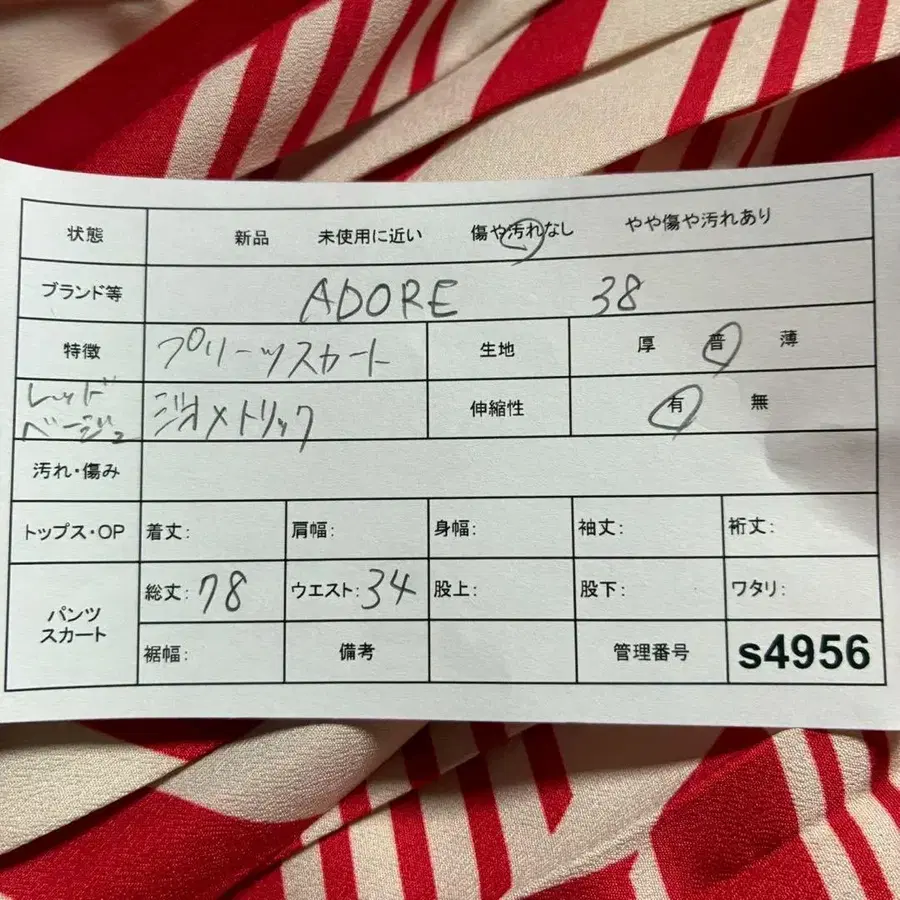 状態 新品 未使用に近い 傷や汚れなし やや傷や汚れあり
ブランド等 ADORE 38
特徴 プリーツスカート 生地 厚 普 薄
レッド ベージュ ジオメトリック 伸縮性 有 無
汚れ・傷み
トップス・OP 着丈: 肩幅: 身幅: 袖丈: 裄丈:
パンツ スカート 総丈: 78 ウエスト: 34 股上: 股下: ワタリ:
裾幅: 備考 管理番号 s4956